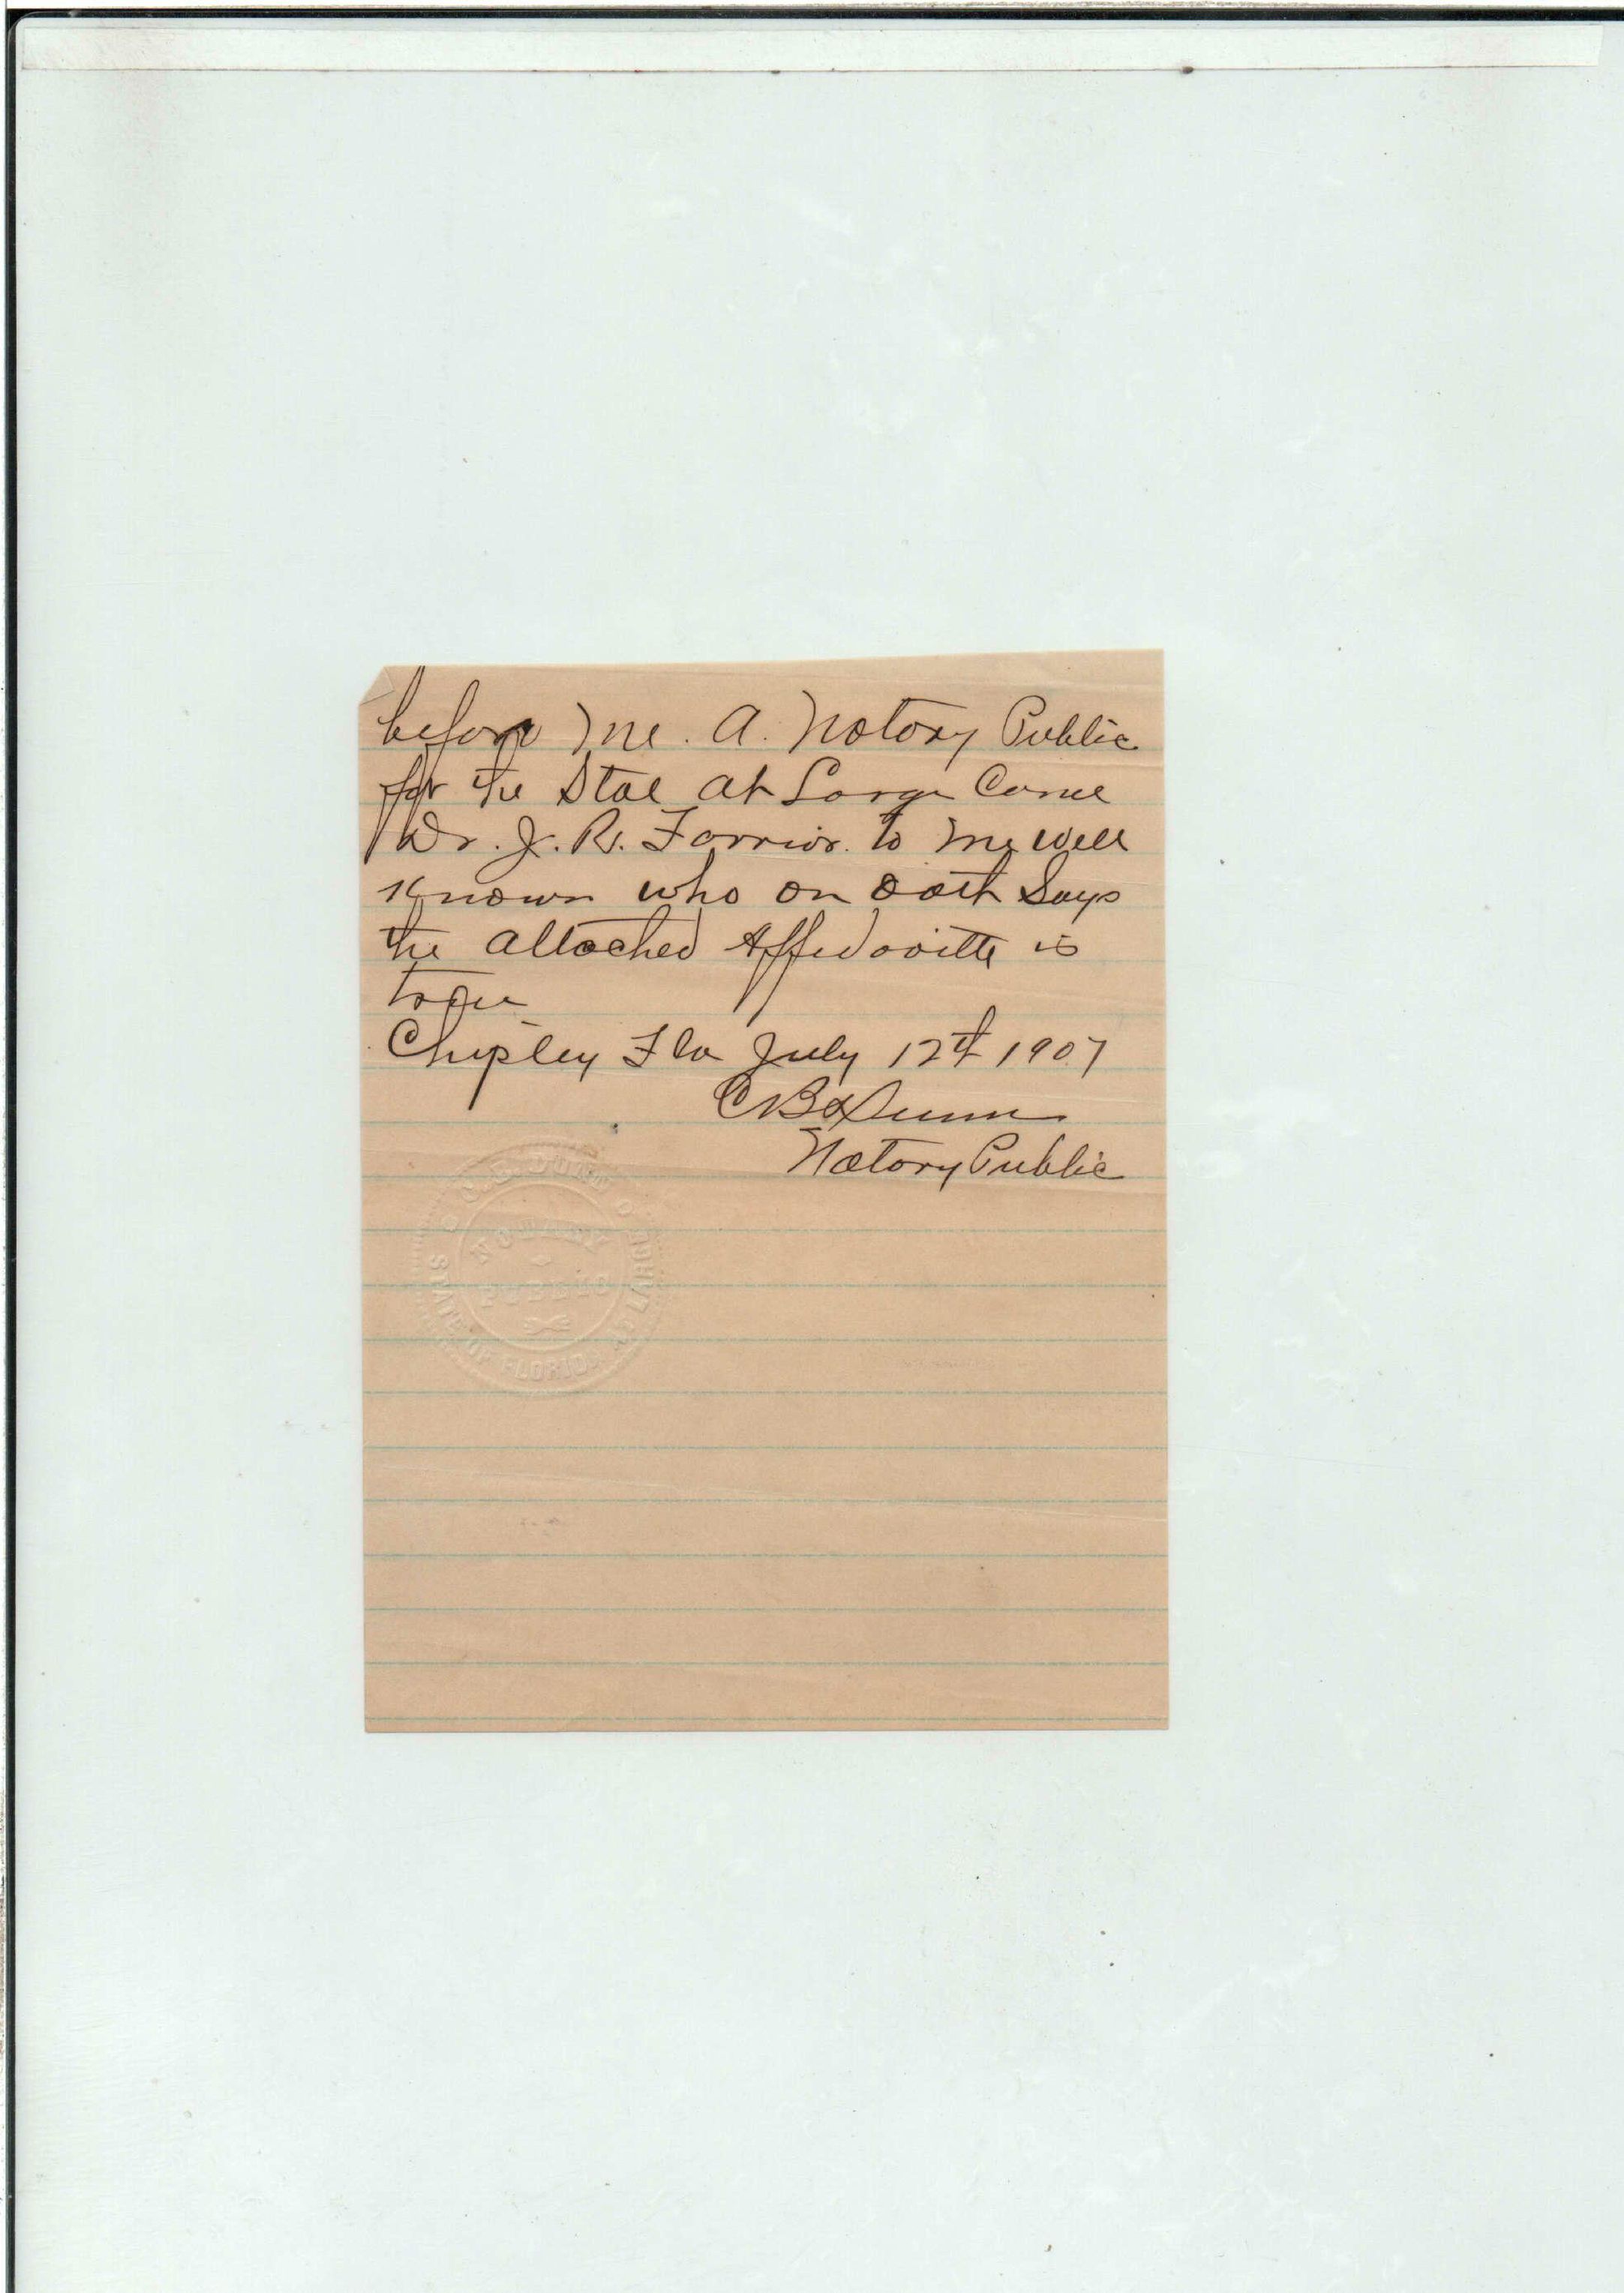 before me. A. Notory Public
for the Stae at Large Came
Dr. J. R. Farrior. to me well
Known who on oath Says
the attached Affidavitte is
true
Chipley Fla July 12th 1907
C B Dunn
Notory Public
C. B. DUNN
NOTARY
PUBLIC
STATE OF FLORIDA AT LARGE